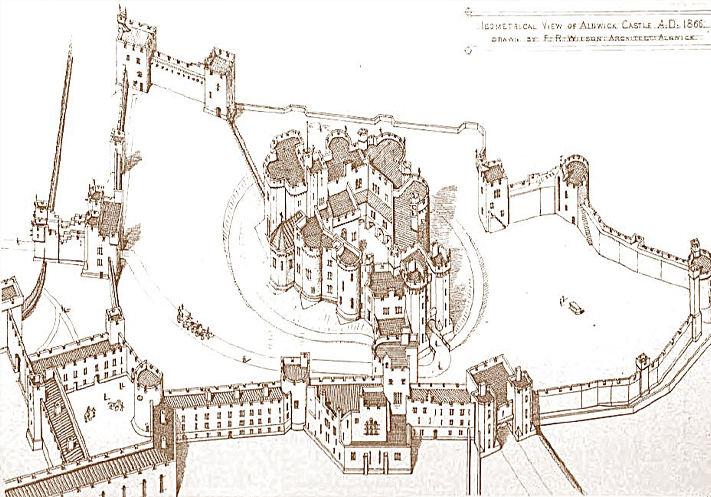 ISOMETRICAL VIEW OF ALNWICK CASTLE A.D. 1866.
DRAWN BY F. R. WILSON: ARCHITECT: ALNWICK.